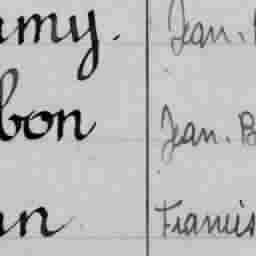 my. Jean.
bon Jean. B
n Francis